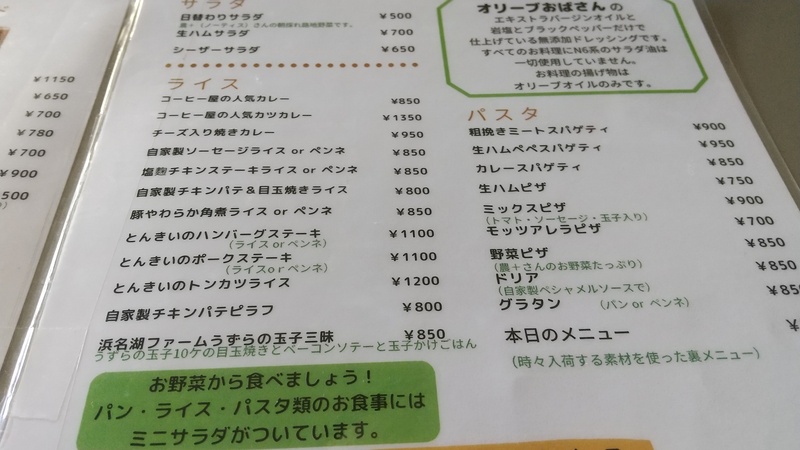 ¥1150
¥650
¥700
¥780
¥700
¥900
500
サラダ
日替わりサラダ ¥500
生ハムサラダ ¥700
シーザーサラダ ¥650
ライス
コーヒー屋の人気カレー ¥850
コーヒー屋の人気カツカレー ¥1350
チーズ入り焼きカレー ¥950
自家製ソーセージライス or ペンネ ¥850
塩麹チキンステーキライス or ペンネ ¥850
自家製チキンパテ&目玉焼きライス ¥800
豚やわらか角煮ライス or ペンネ ¥850
とんきいのハンバーグステーキ ¥1100
(ライス or ペンネ)
とんきいのポークステーキ ¥1100
(ライスor ペンネ)
とんきいのトンカツライス ¥1200
自家製チキンパテピラフ ¥800
浜名湖ファームうずらの玉子三昧 ¥850
うずらの玉子10ケの目玉焼きとベーコンソテーと玉子かけごはん
お野菜から食べましょう!
パン・ライス・パスタ類のお食事には
ミニサラダがついています。
オリーブおばさんの
エキストラバージンオイルと
岩塩とブラックペッパーだけで
仕上げている無添加ドレッシングです。
すべてのお料理にN6系のサラダ油は
一切使用していません。
お料理の揚げ物は
オリーブオイルのみです。
パスタ
粗挽きミートスパゲティ ¥900
生ハムペペスパゲティ ¥950
カレースパゲティ ¥850
生ハムピザ ¥750
ミックスピザ ¥900
(トマト・ソーセージ・玉子入り)
モッツアレラピザ ¥700
野菜ピザ ¥850
(農+さんのお野菜たっぷり)
ドリア ¥850
(自家製ベシャメルソースで)
グラタン (パン or ペンネ) ¥85
本日のメニュー ¥
(時々入荷する素材を使った裏メニュー)